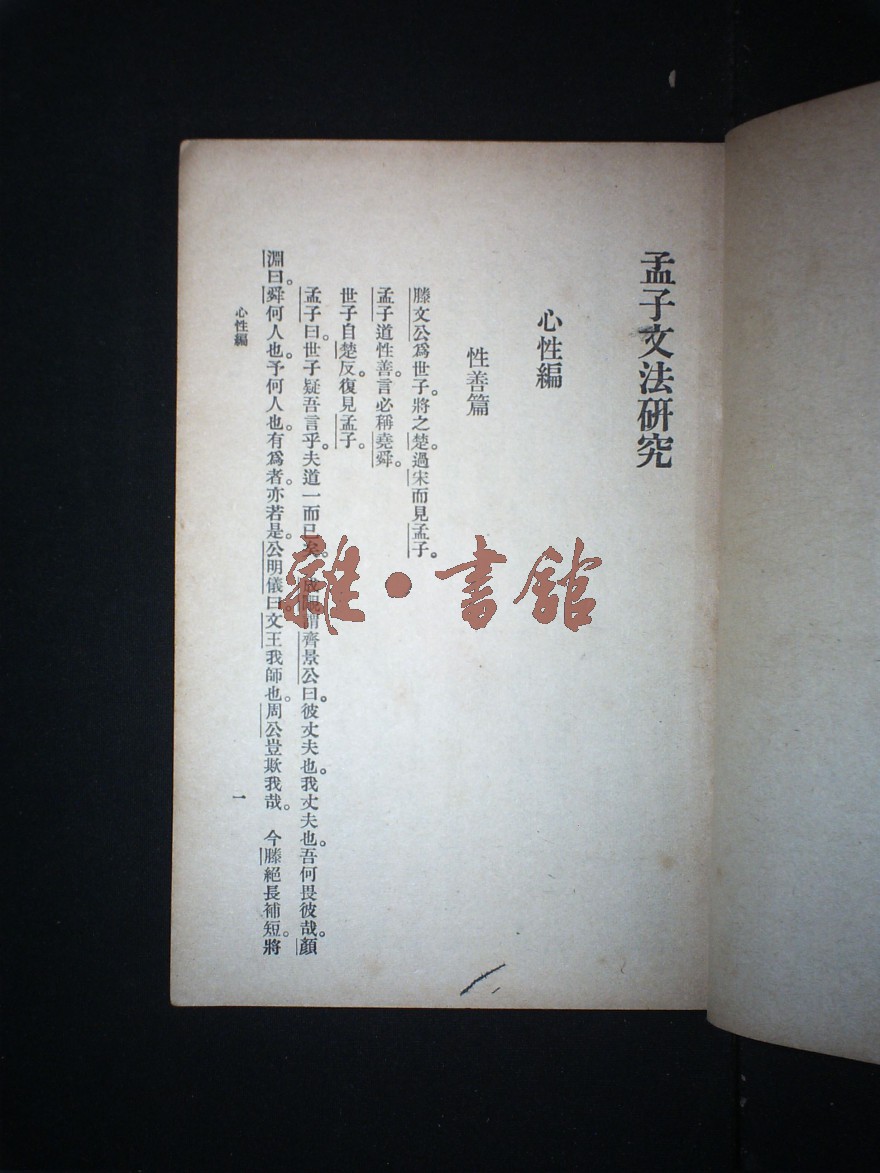 孟子文法研究
心性編
性善篇
滕文公爲世子。將之楚。過宋而見孟子。
孟子道性善。言必稱堯舜。
世子自楚反。復見孟子。
孟子曰。世子疑吾言乎。夫道一而已矣。成覵謂齊景公曰。彼丈夫也。我丈夫也。吾何畏彼哉。顏
淵曰。舜何人也。予何人也。有爲者。亦若是。公明儀曰。文王我師也。周公豈欺我哉。今滕絕長補短。將
心性編
一
雜·書館